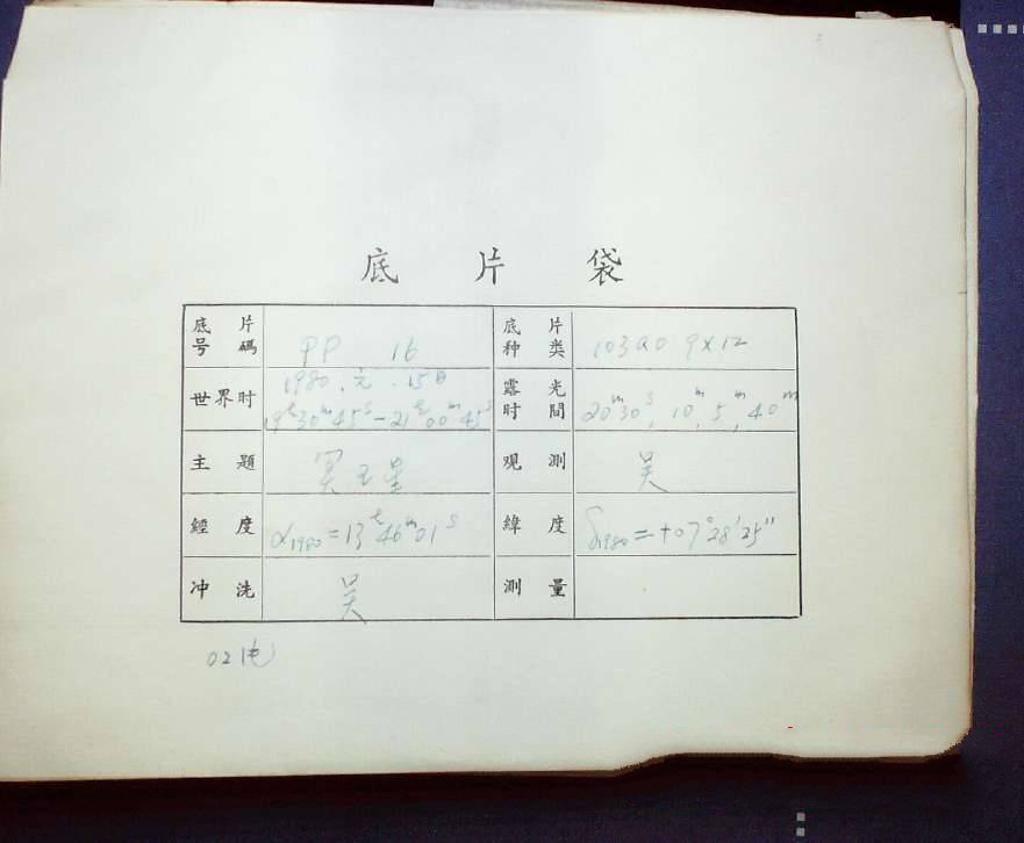 底片袋
底片号碼 PP 16 底片种类 103aO 9×12
世界时 1980.元.15日 19ʰ30ᵐ45ˢ-21ʰ00ᵐ45ˢ 露光时間 20ᵐ30ˢ, 10ᵐ, 5ᵐ, 40ᵐ
主題 冥王星 观測 吴
經度 α1980=13ʰ46ᵐ01ˢ 緯度 δ1980=+07°28′25″
冲洗 吴 測量
021